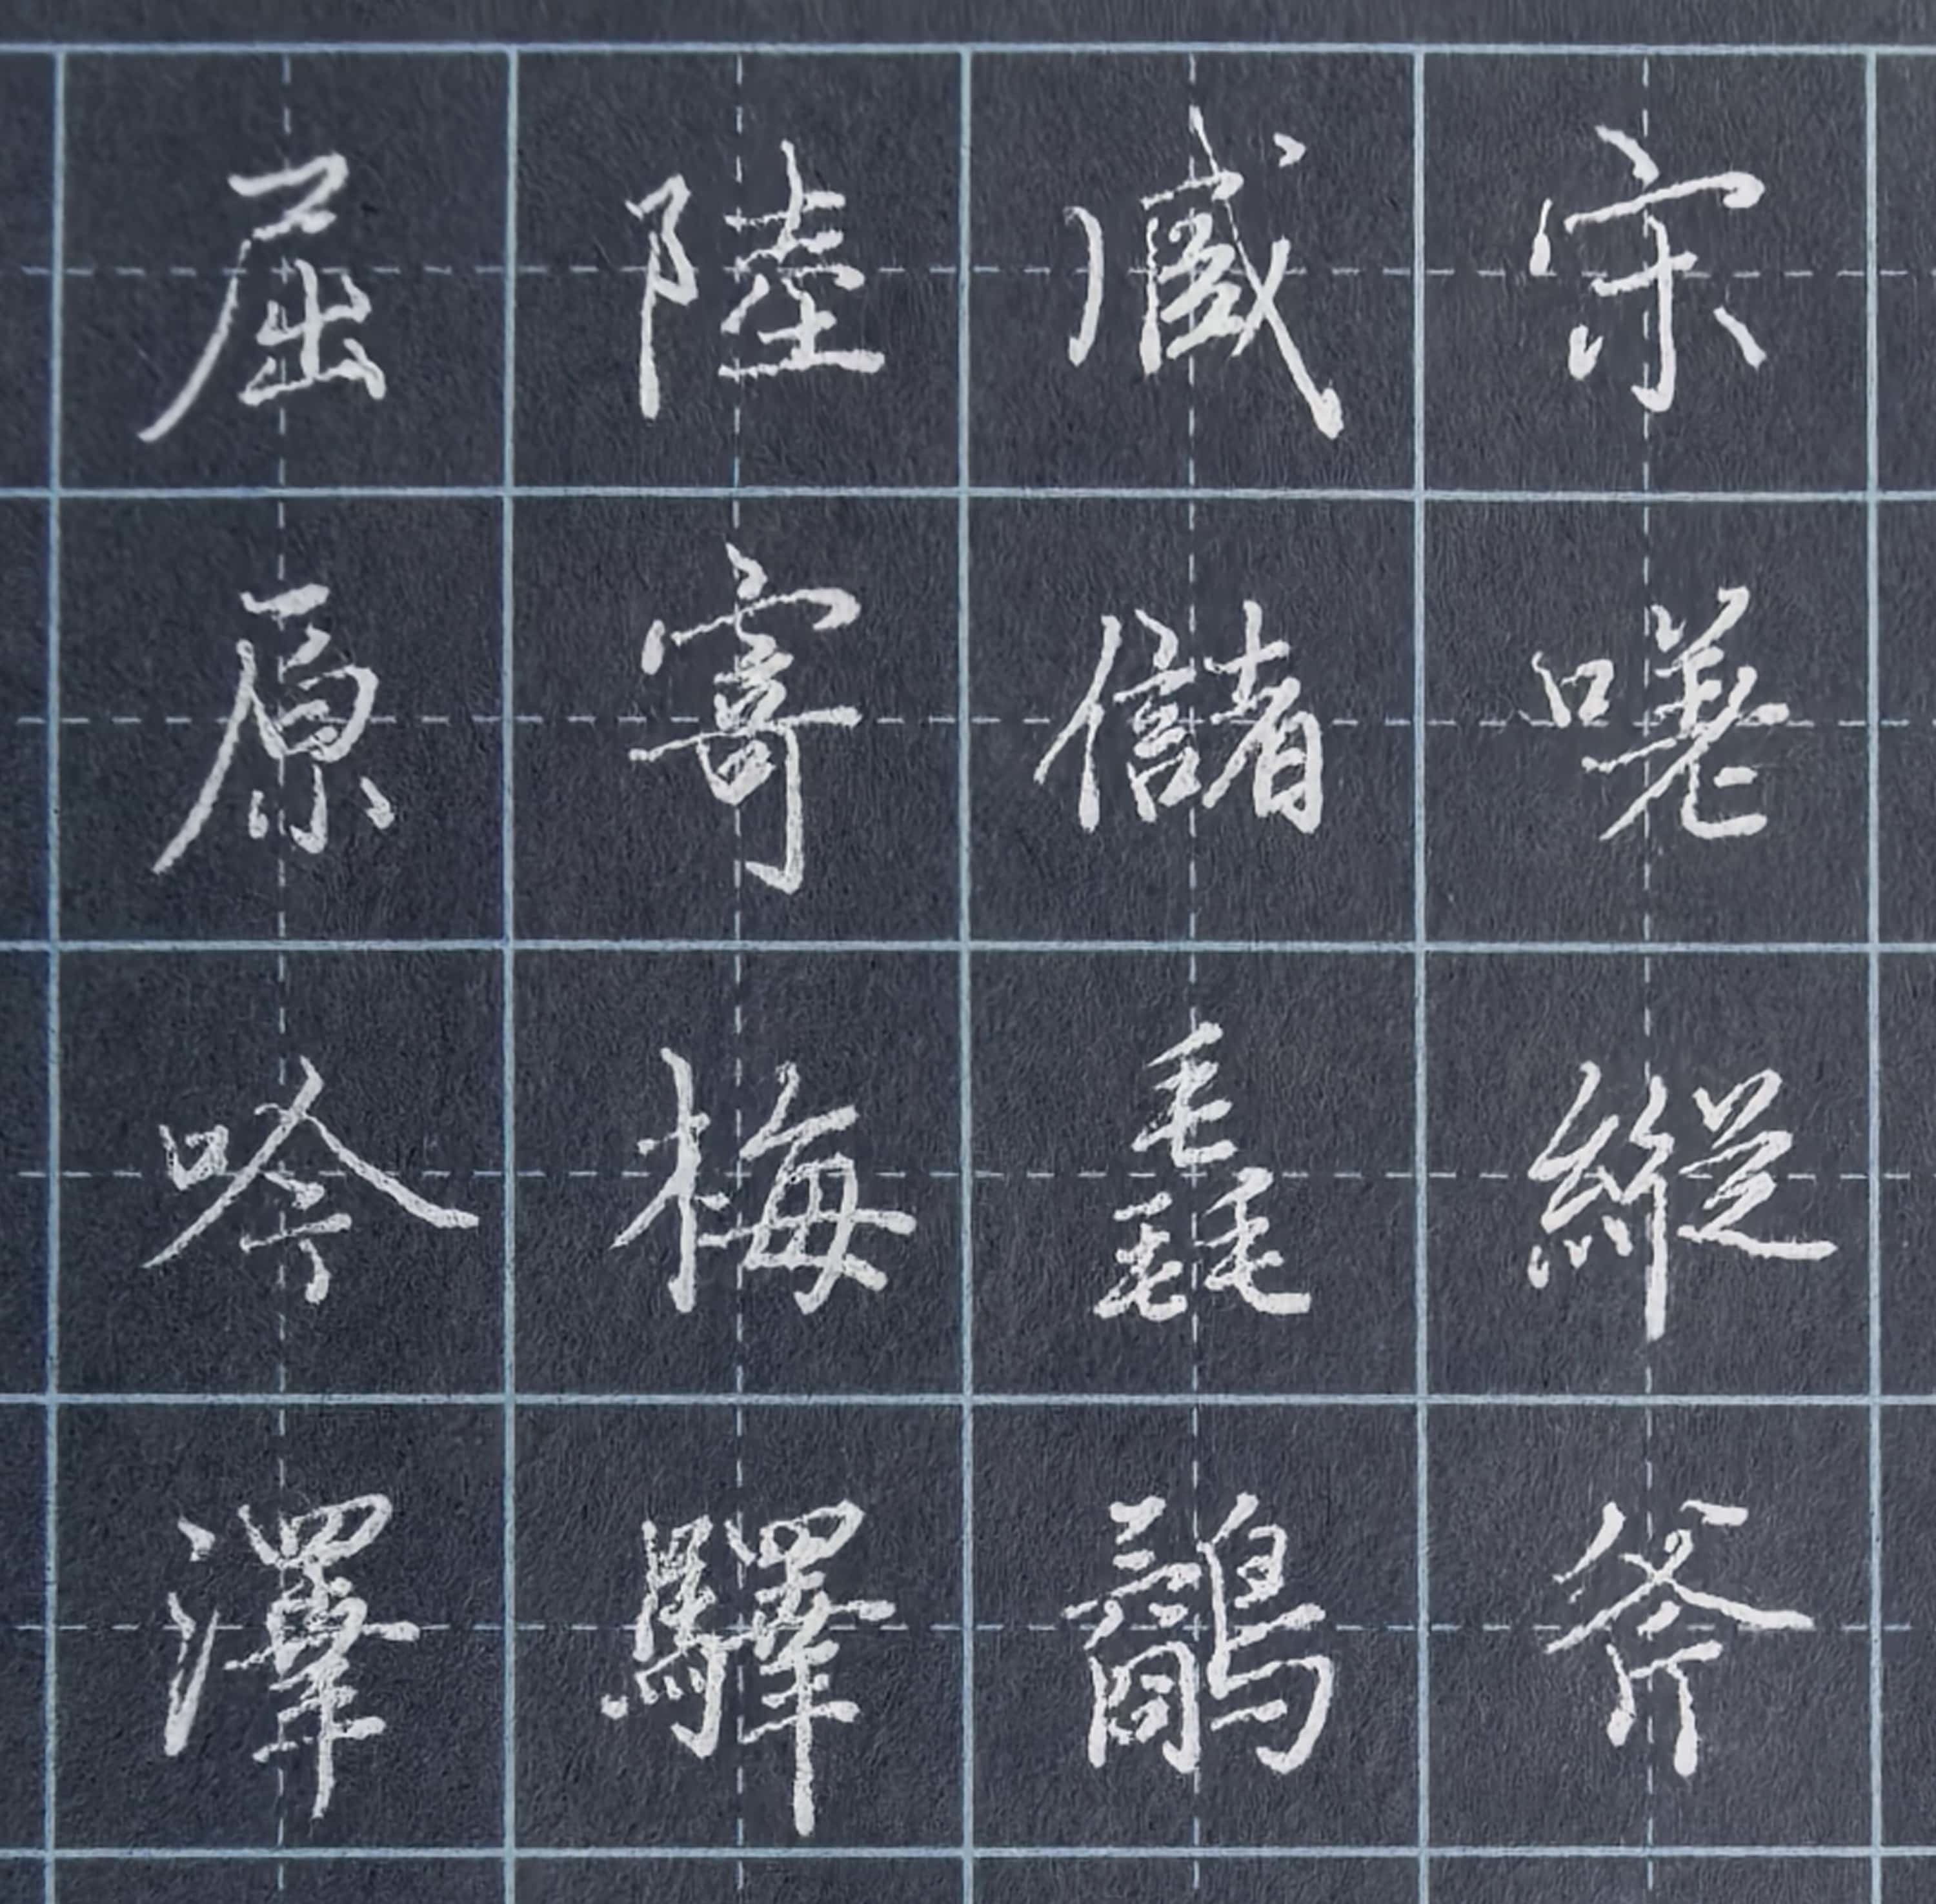 宋嗟縱斧
臧儲毳鷸
陸寄梅驛
屈原吟澤